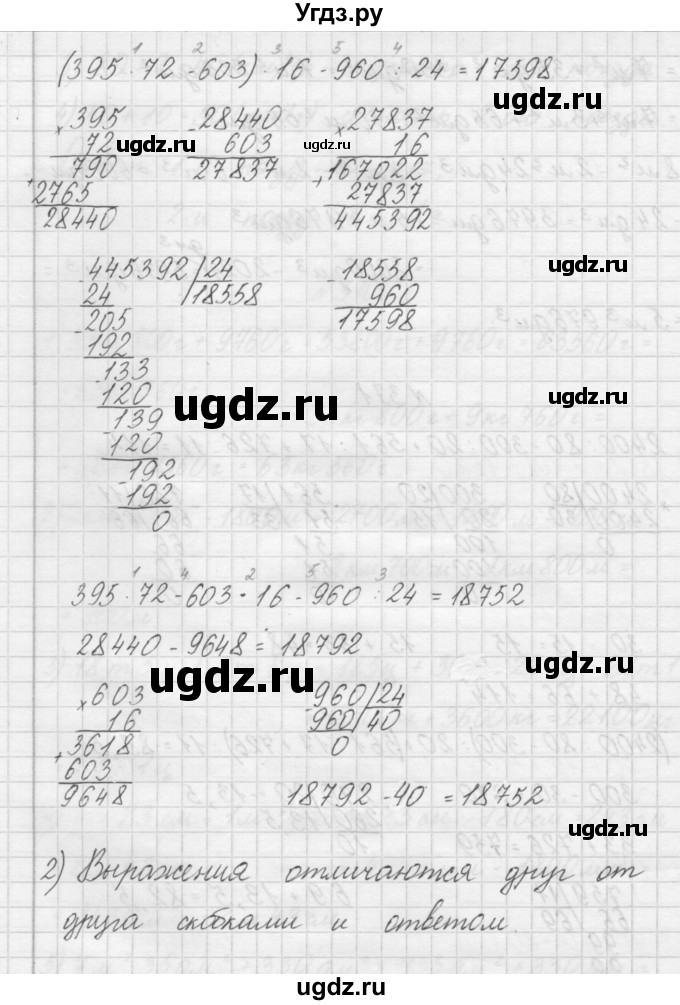 Угдз.ру
1 2 3 5 4
(395 · 72 - 603) · 16 - 960 : 24 = 17598
× 395 - 28440 × 27837
72 ugdz.ru 603 ugdz.ru 16 ugdz.ru
790 27837 + 167022
+ 2765 27837
28440 445392
- 445392 | 24 - 18558 ugdz.ru
24 18558 960
- 205 17598
192
- 133
120 ugdz.ru ugdz.ru
- 139
120
- 192
192
0
1 4 2 5 3
395 · 72 - 603 · 16 - 960 : 24 = 18752
28440 - 9648 = 18792
ugdz.ru ugdz.ru
× 603 - 960 | 24
16 960 40
+ 3618 0
603
9648 18792 - 40 = 18752
ugdz.ru
2) Выражения отличаются друг от
друга скобками и ответом.
ugdz.ru ugdz.ru
Угдз.ру